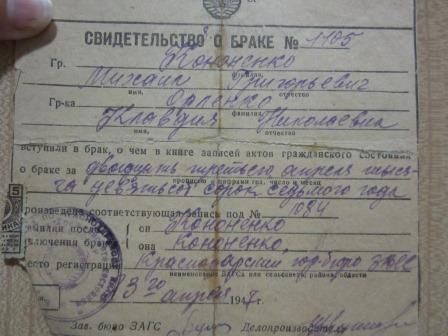 СВИДЕТЕЛЬСТВО О БРАКЕ № 1105
Гр. Кононенко
фамилия
Михаил Григорьевич
имя, отчество
Гр-ка
фамилия
Клавдия Николаевна
имя, отчество
вступили в брак, о чем в книге записей актов гражданского состояния
о браке за двадцать третьего апреля тыся-
ча девятьсот сорок седьмого года
прописью и цифрами год, число и месяц
произведена соответствующая запись под № 1084
Фамилии после си он Кононенко
ключения брака: она Кононенко
есто регистрации Краснодарский гор-бюро ЗАГС
наименование ЗАГСа или сельсовета, района, области
апреля 194
Зав. бюро ЗАГС
Делопроизводитель